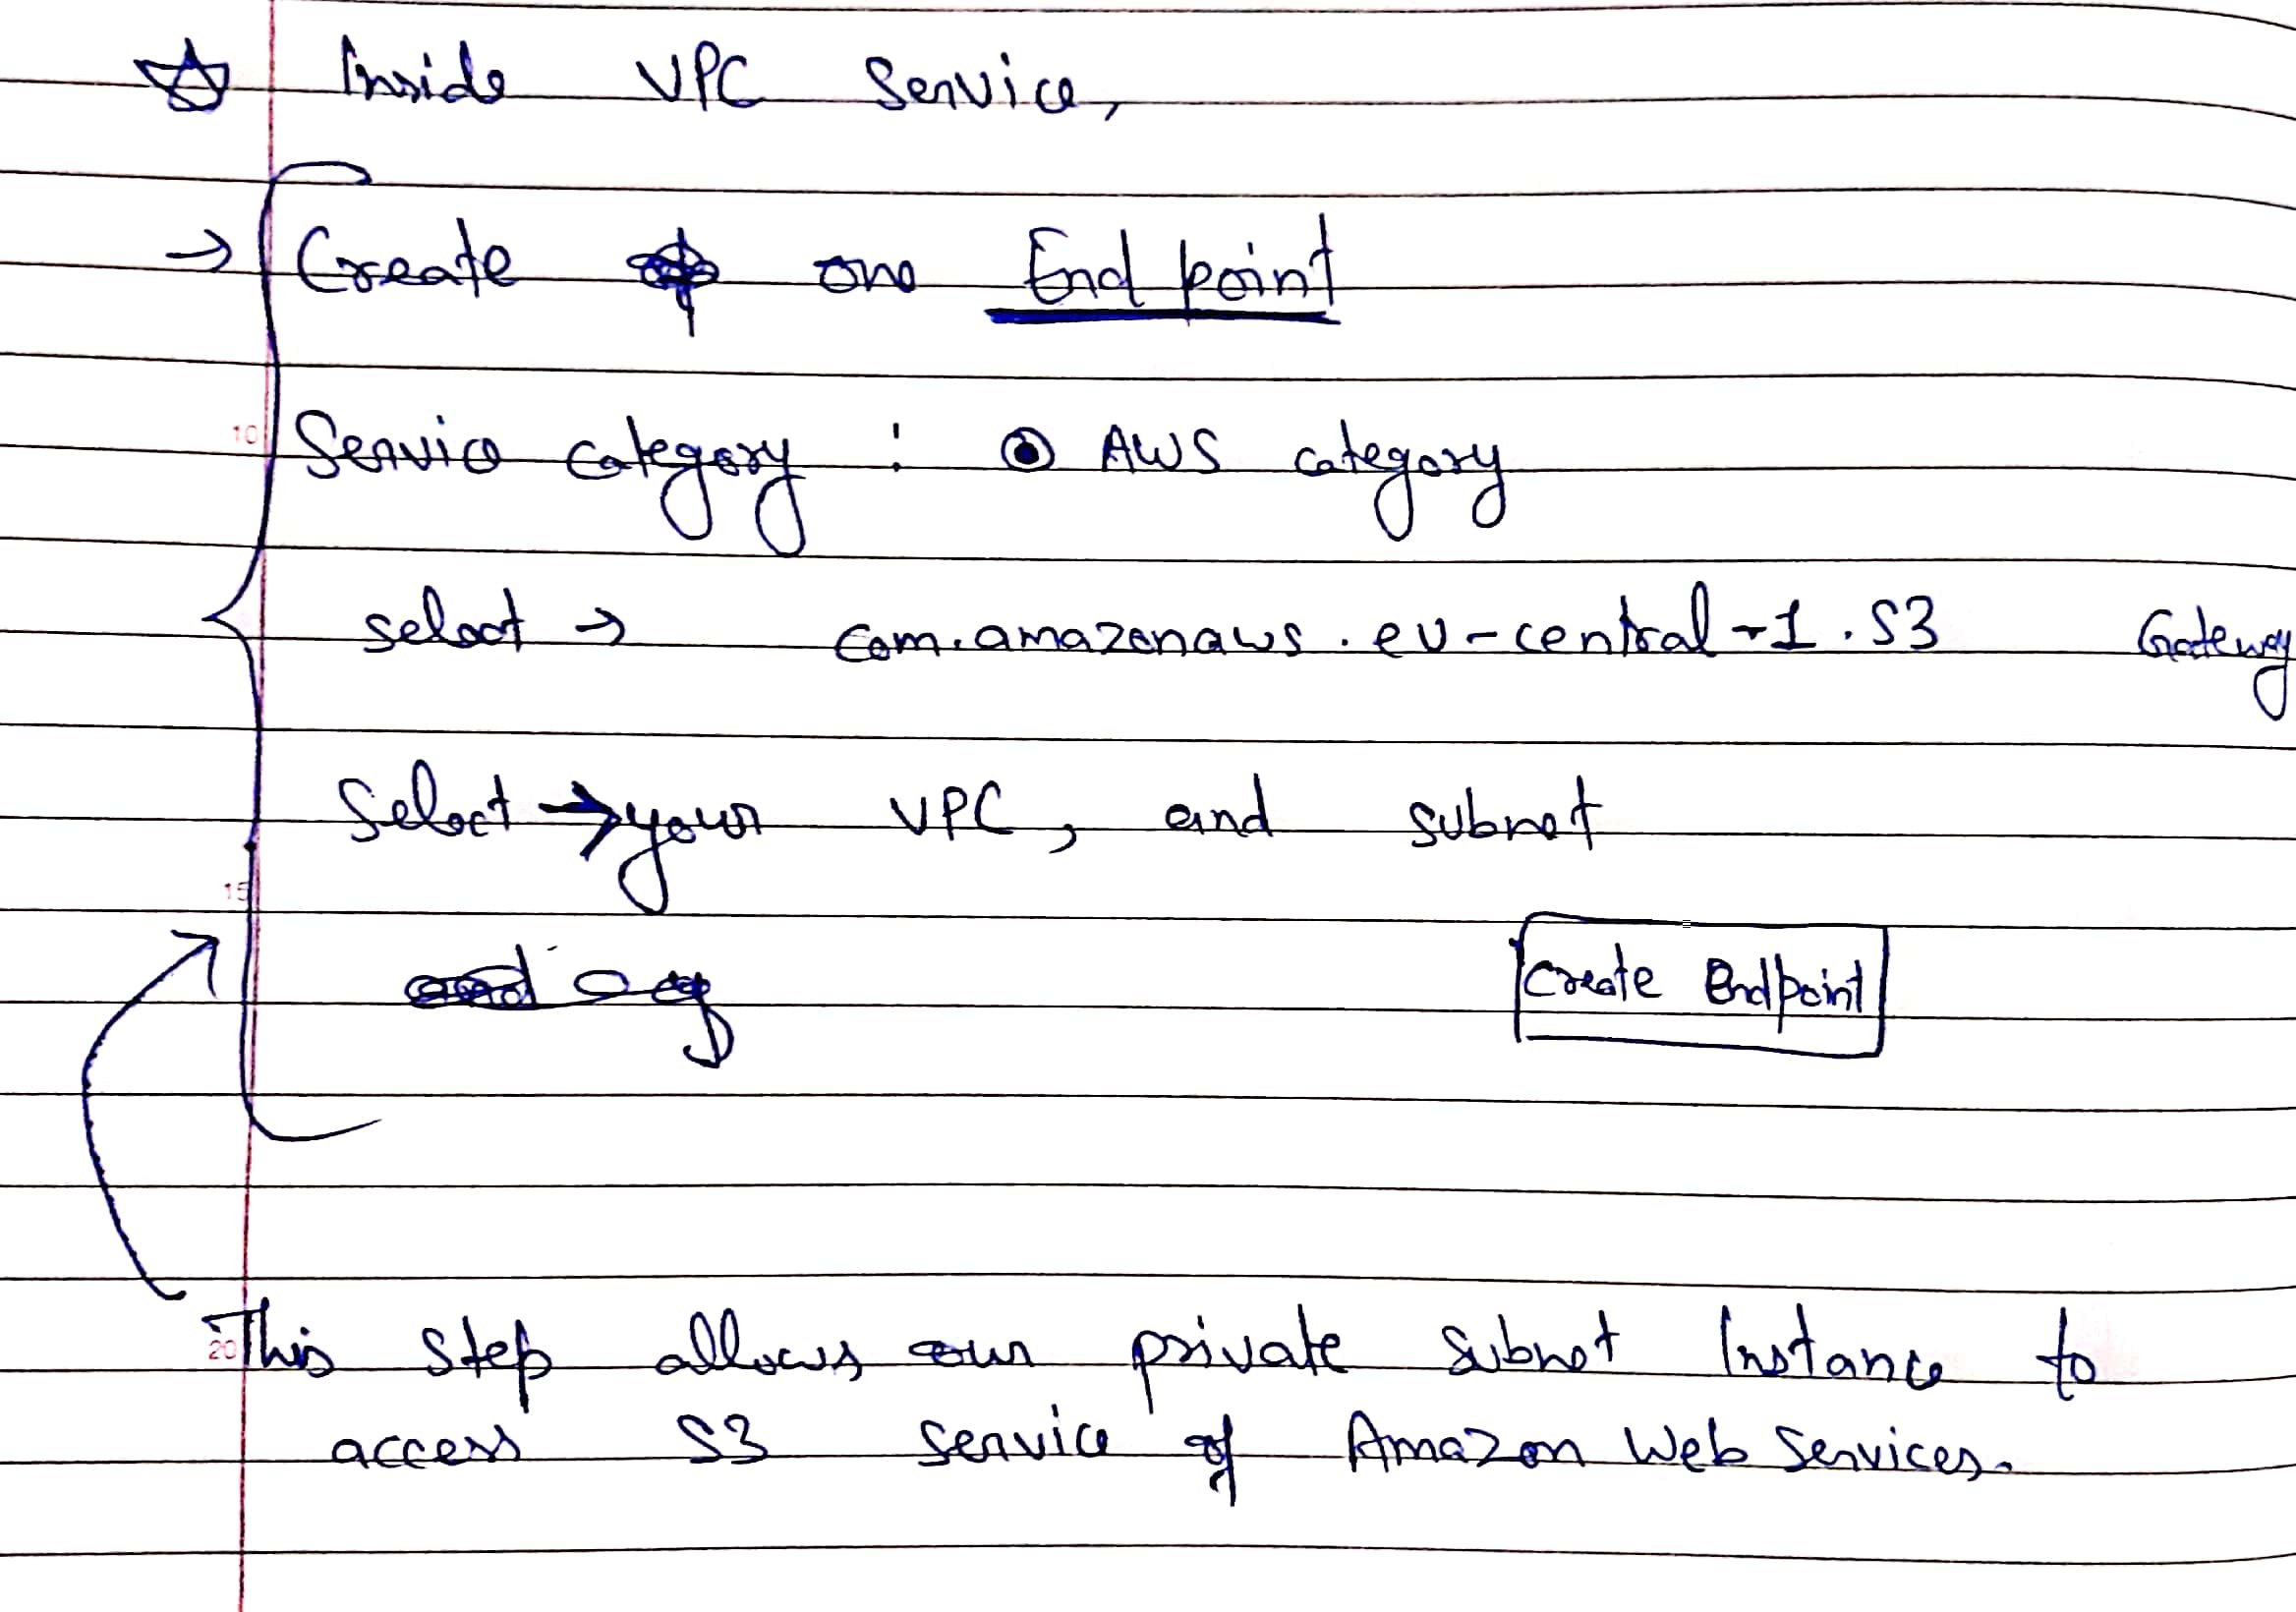 ☆ Inside VPC Service,
→ Create one End point
10 Service category : ⦿ AWS category
select → com.amazonaws.eu-central-1.S3 Gateway
Select → your VPC, and subnet
15
Create Endpoint
20 This step allows our private subnet Instance to
access S3 service of Amazon Web Services.